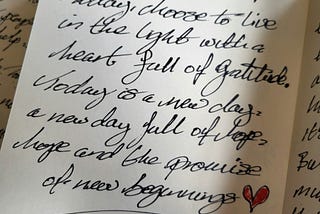 today, choose to live
in the light with a
heart full of gratitude.
Today is a new day.
a new day full of hope,
hope and the promise
of new beginnings